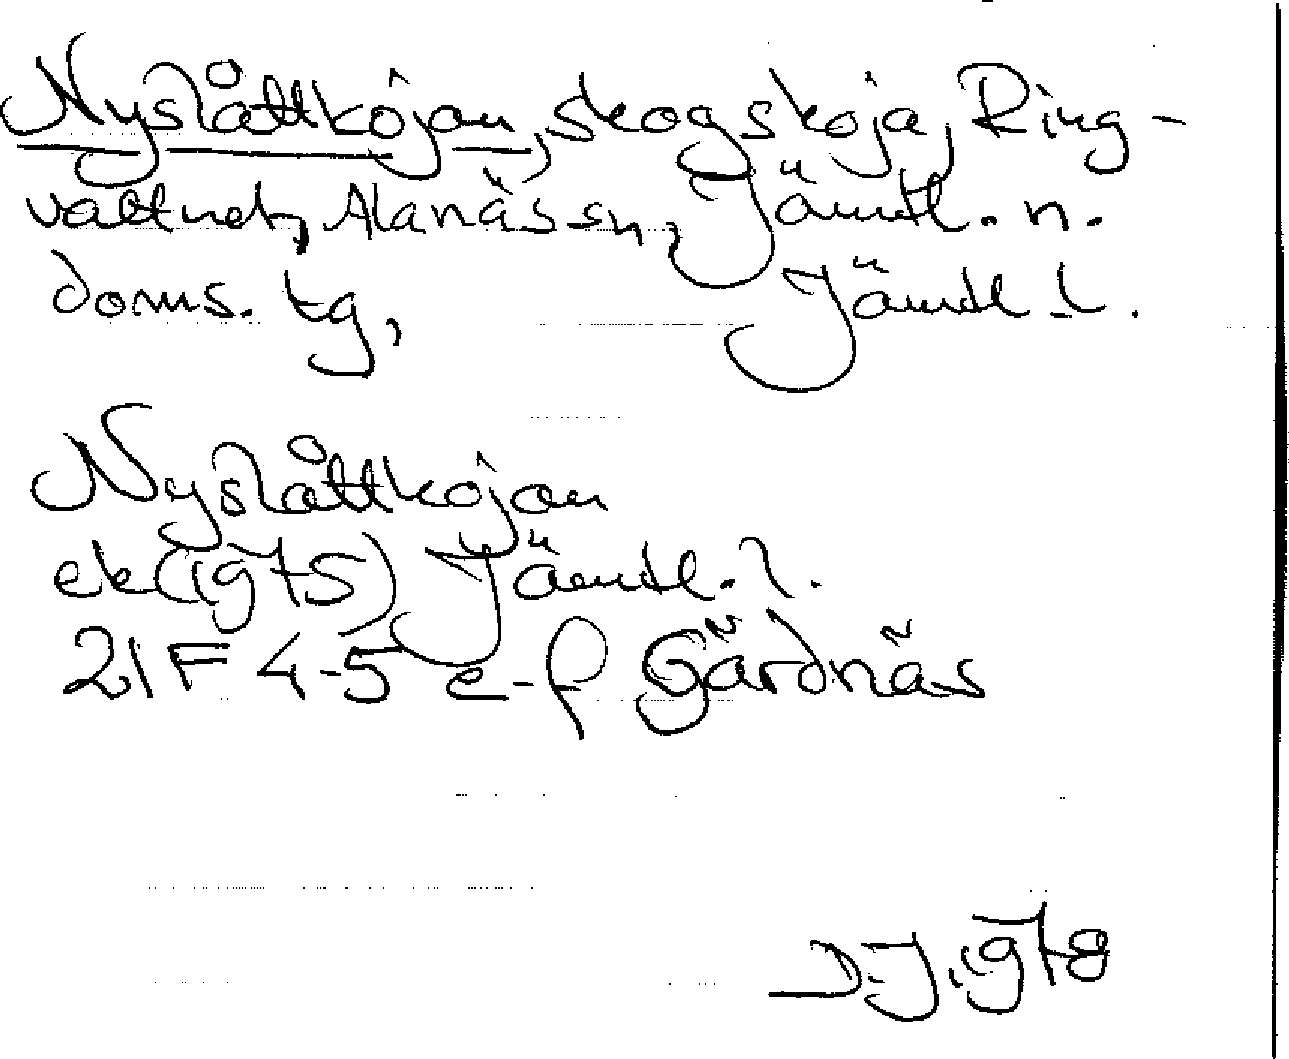 Nyslåttkojan, skogskoja, Ring-
vattnet, Alanäs sn, Jämtl. n.
doms. tg, Jämtl. l.
Nyslåttkojan
ek (1975) Jämtl. l.
21F 4-5 e-f Gärdnäs
D.J. 1978